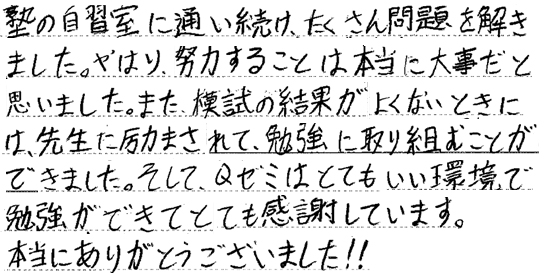 塾の自習室に通い続け、たくさん問題を解き
ました。やはり、努力することは本当に大事だと
思いました。また、模試の結果がよくないときに
は、先生に励まされて、勉強に取り組むことが
できました。そして、Qゼミはとてもいい環境で
勉強ができてとても感謝しています。
本当にありがとうございました!!